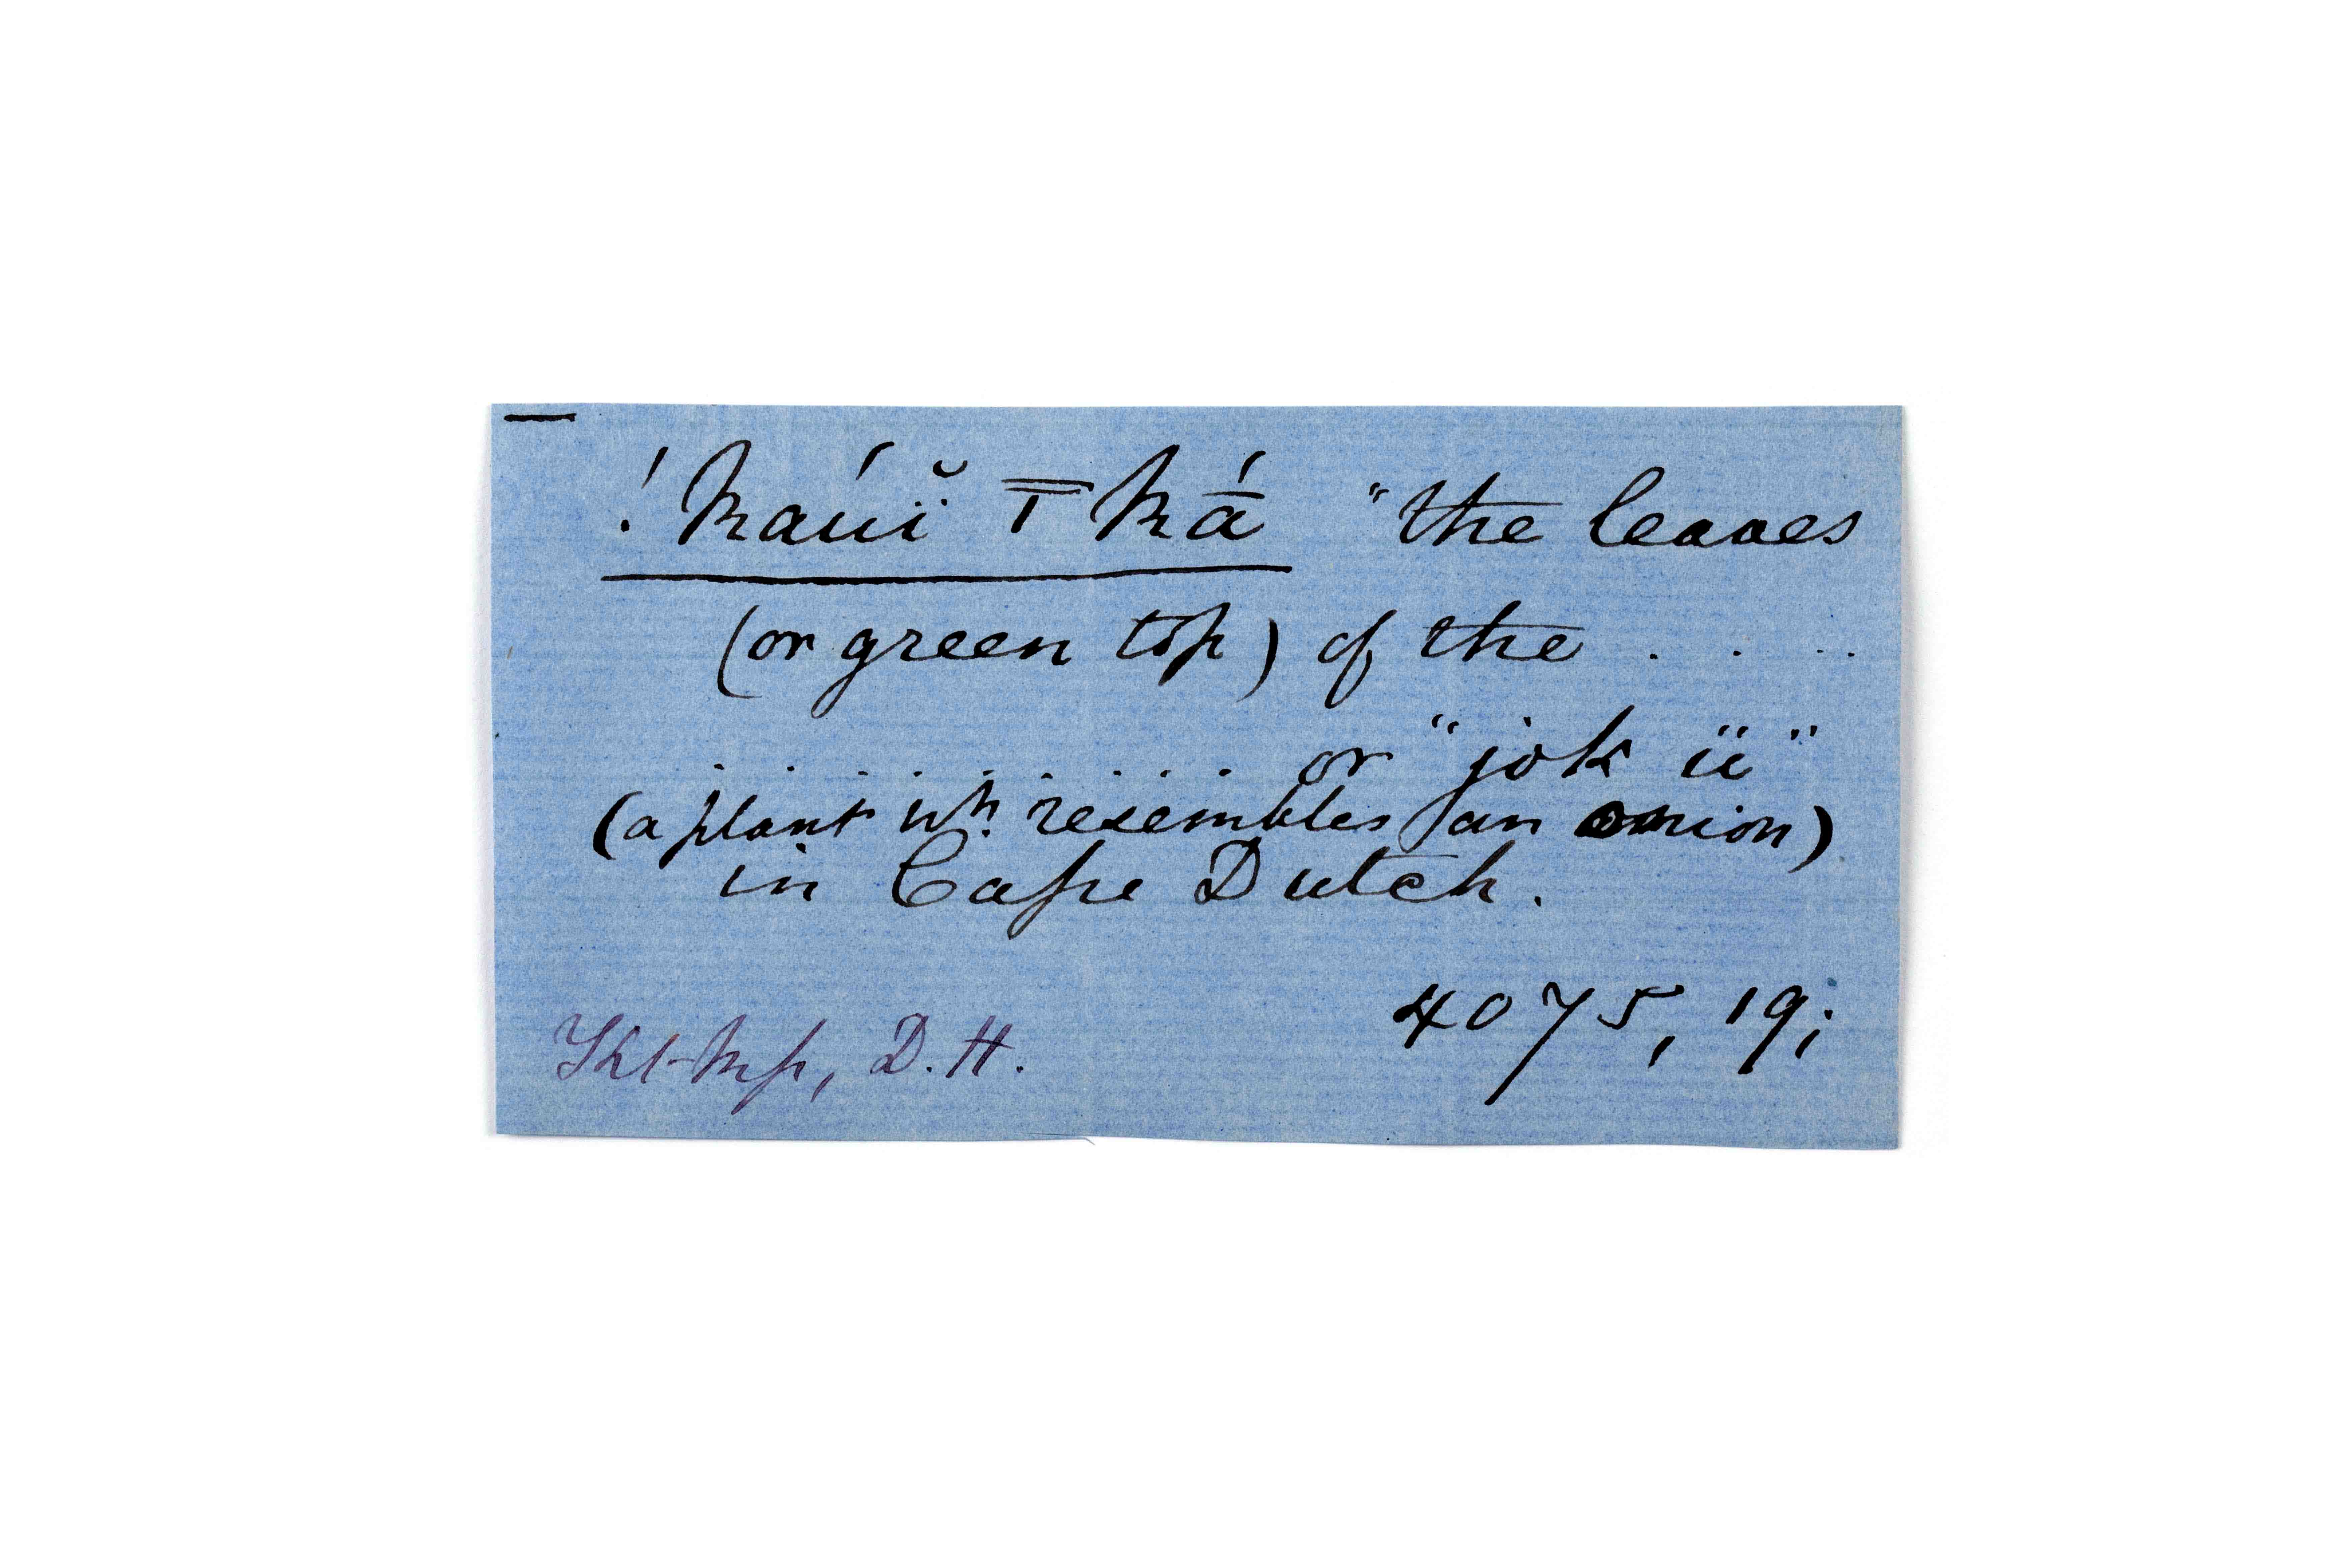 ! kaúĭ̯ ǂ ká̄ "the leaves
(or green top) of the . . . .
. . . . . . . . . or "jok üi"
(a plant wh. resembles an onion)
in Cape Dutch.
4075, 19;
D.H.